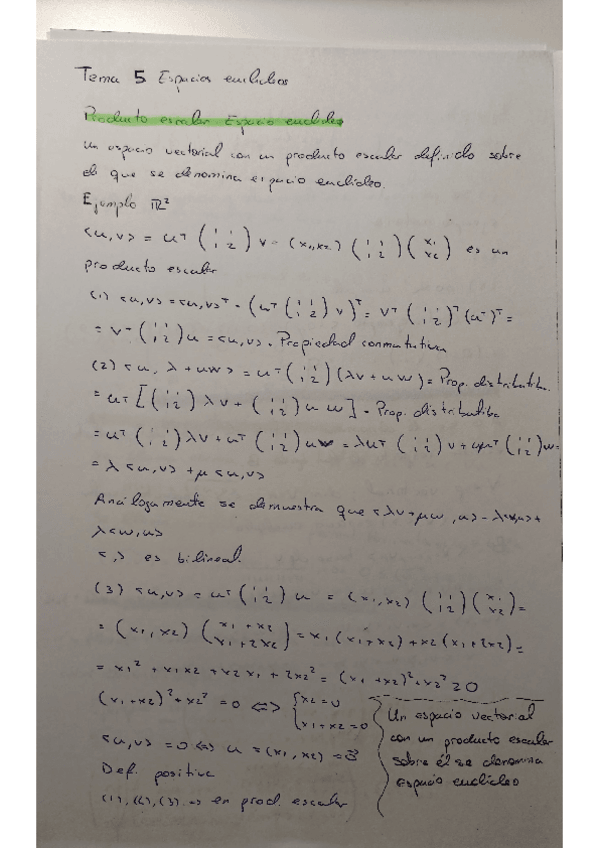 Tema 5 Espacios euclideos
Producto escalar Espacio euclideo
Un espacio vectorial con un producto escalar definido sobre
el que se denomina espacio euclideo.
Ejemplo ℝ²
<u,v> = uᵀ (1 1 / 1 2) v = (x₁,x₂) (1 1 / 1 2) (x₁ / x₂) es un
producto escalar
(1) <u,v> = <u,v>ᵀ = (uᵀ (1 1 / 1 2) v)ᵀ = vᵀ (1 1 / 1 2)ᵀ (uᵀ)ᵀ =
= vᵀ (1 1 / 1 2) u = <u,v>. Propiedad conmutativa
(2) <u, λ + uw> = uᵀ (1 1 / 1 2) (λv + uw) = Prop. distributiba.
= uᵀ [(1 1 / 1 2) λv + (1 1 / 1 2) u w] = Prop. distributiba
= uᵀ (1 1 / 1 2) λv + uᵀ (1 1 / 1 2) uw = λuᵀ (1 1 / 1 2) v + uᵀ (1 1 / 1 2) w =
= λ <u,v> + μ <u,v>
Análogamente se demuestra que <λv + μw, u> = λ<v,u> +
λ<w,u>
<,> es bilineal.
(3) <u,v> = uᵀ (1 1 / 1 2) u = (x₁,x₂) (1 1 / 1 2) (x₁ / x₂) =
= (x₁,x₂) (x₁ + x₂ / x₁ + 2x₂) = x₁ (x₁+x₂) + x2 (x₁ + 2x2) =
= x₁² + x₁x2 + x2x₁ + 2x2² = (x₁ + x2)² + x2² ≥ 0
(x₁ + x2)² + x2² = 0 <=> { x2 = 0 / x₁ + x2 = 0
<u,v> = 0 <=> u = (x₁, x2) = 0
Def. positiva
(1), (2), (3) => en prod. escalar
Un espacio vectorial
con un producto escalar
sobre él se denomina
espacio euclideo